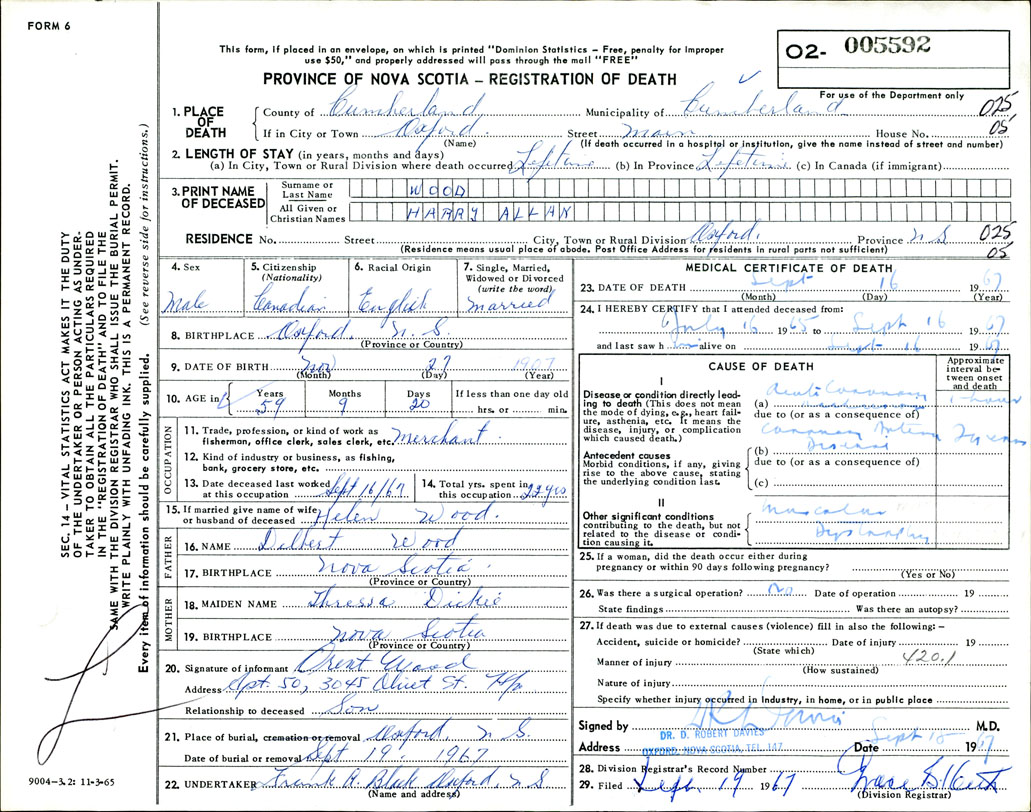 FORM 6
This form, if placed in an envelope, on which is printed "Dominion Statistics - Free, penalty for improper
use $50," and properly addressed will pass through the mail "FREE"
PROVINCE OF NOVA SCOTIA - REGISTRATION OF DEATH
02- 005592
For use of the Department only
1. PLACE OF DEATH
County of Cumberland Municipality of Cumberland 025
If in City or Town Oxford Street Main House No. 05
(Name) (If death occurred in a hospital or institution, give the name instead of street and number)
2. LENGTH OF STAY (in years, months and days)
(a) In City, Town or Rural Division where death occurred Lifetime (b) In Province Lifetime (c) In Canada (if immigrant)
3. PRINT NAME OF DECEASED
Surname or Last Name WOOD
All Given or Christian Names HARRY ALLAN
RESIDENCE No. Street City, Town or Rural Division Oxford. Province N S 025
(Residence means usual place of abode. Post Office Address for residents in rural parts not sufficient) 05
4. Sex Male
5. Citizenship (Nationality) Canadian
6. Racial Origin English
7. Single, Married, Widowed or Divorced (write the word) Married
8. BIRTHPLACE Oxford, N. S.
(Province or Country)
9. DATE OF BIRTH Nov 27 1907
(Month) (Day) (Year)
10. AGE in Years 59 Months 9 Days 20 If less than one day old hrs. or min.
OCCUPATION
11. Trade, profession, or kind of work as
fisherman, office clerk, sales clerk, etc. Merchant
12. Kind of industry or business, as fishing,
bank, grocery store, etc.
13. Date deceased last worked at this occupation Sept 16/67
14. Total yrs. spent in this occupation 22 yrs
15. If married give name of wife or husband of deceased Helen Wood.
FATHER
16. NAME Delbert Wood
17. BIRTHPLACE Nova Scotia
(Province or Country)
MOTHER
18. MAIDEN NAME Thressa Dickie
19. BIRTHPLACE Nova Scotia
(Province or Country)
20. Signature of informant Wood
Address Apt. 50, 3045 St.
Relationship to deceased Son
21. Place of burial, cremation or removal Oxford, N. S.
Date of burial or removal Sept 19, 1967
22. UNDERTAKER Frank A. Black Oxford, N S
(Name and address)
MEDICAL CERTIFICATE OF DEATH
23. DATE OF DEATH Sept 16 1967
(Month) (Day) (Year)
24. I HEREBY CERTIFY that I attended deceased from:
July 16 1965 to Sept 16 1967
and last saw him alive on Sept 16 1967
CAUSE OF DEATH
Approximate interval between onset and death
I
Disease or condition directly leading to death (This does not mean the mode of dying, e.g., heart failure, asthenia, etc. It means the disease, injury, or complication which caused death.)
(a) Acute Coronary 1 hour
due to (or as a consequence of)
Coronary Artery 2 years
Antecedent causes
Morbid conditions, if any, giving rise to the above cause, stating the underlying condition last.
(b) Disease
due to (or as a consequence of)
(c)
II
Other significant conditions
contributing to the death, but not related to the disease or condition causing it.
Muscular
Dystrophy
25. If a woman, did the death occur either during
pregnancy or within 90 days following pregnancy?
(Yes or No)
26. Was there a surgical operation? No Date of operation 19
State findings Was there an autopsy?
27. If death was due to external causes (violence) fill in also the following: -
Accident, suicide or homicide? Date of injury 19
(State which)
Manner of injury 420.1
(How sustained)
Nature of injury
Specify whether injury occurred in industry, in home, or in public place
Signed by M.D.
DR. D. ROBERT DAVIES
Address OXFORD, NOVA SCOTIA, TEL. 147 Date Sept 1967
28. Division Registrar's Record Number
29. Filed Sept. 19 1967
(Division Registrar)
SEC. 14 - VITAL STATISTICS ACT MAKES IT THE DUTY
OF THE UNDERTAKER OR PERSON ACTING AS UNDER-
TAKER TO OBTAIN ALL THE PARTICULARS REQUIRED
IN THE "REGISTRATION OF DEATH" AND TO FILE THE
SAME WITH THE DIVISION REGISTRAR WHO SHALL ISSUE THE BURIAL PERMIT.
WRITE PLAINLY WITH UNFADING INK. THIS IS A PERMANENT RECORD.
Every item of information should be carefully supplied. (See reverse side for instructions.)
9004-3.2: 11-3-65